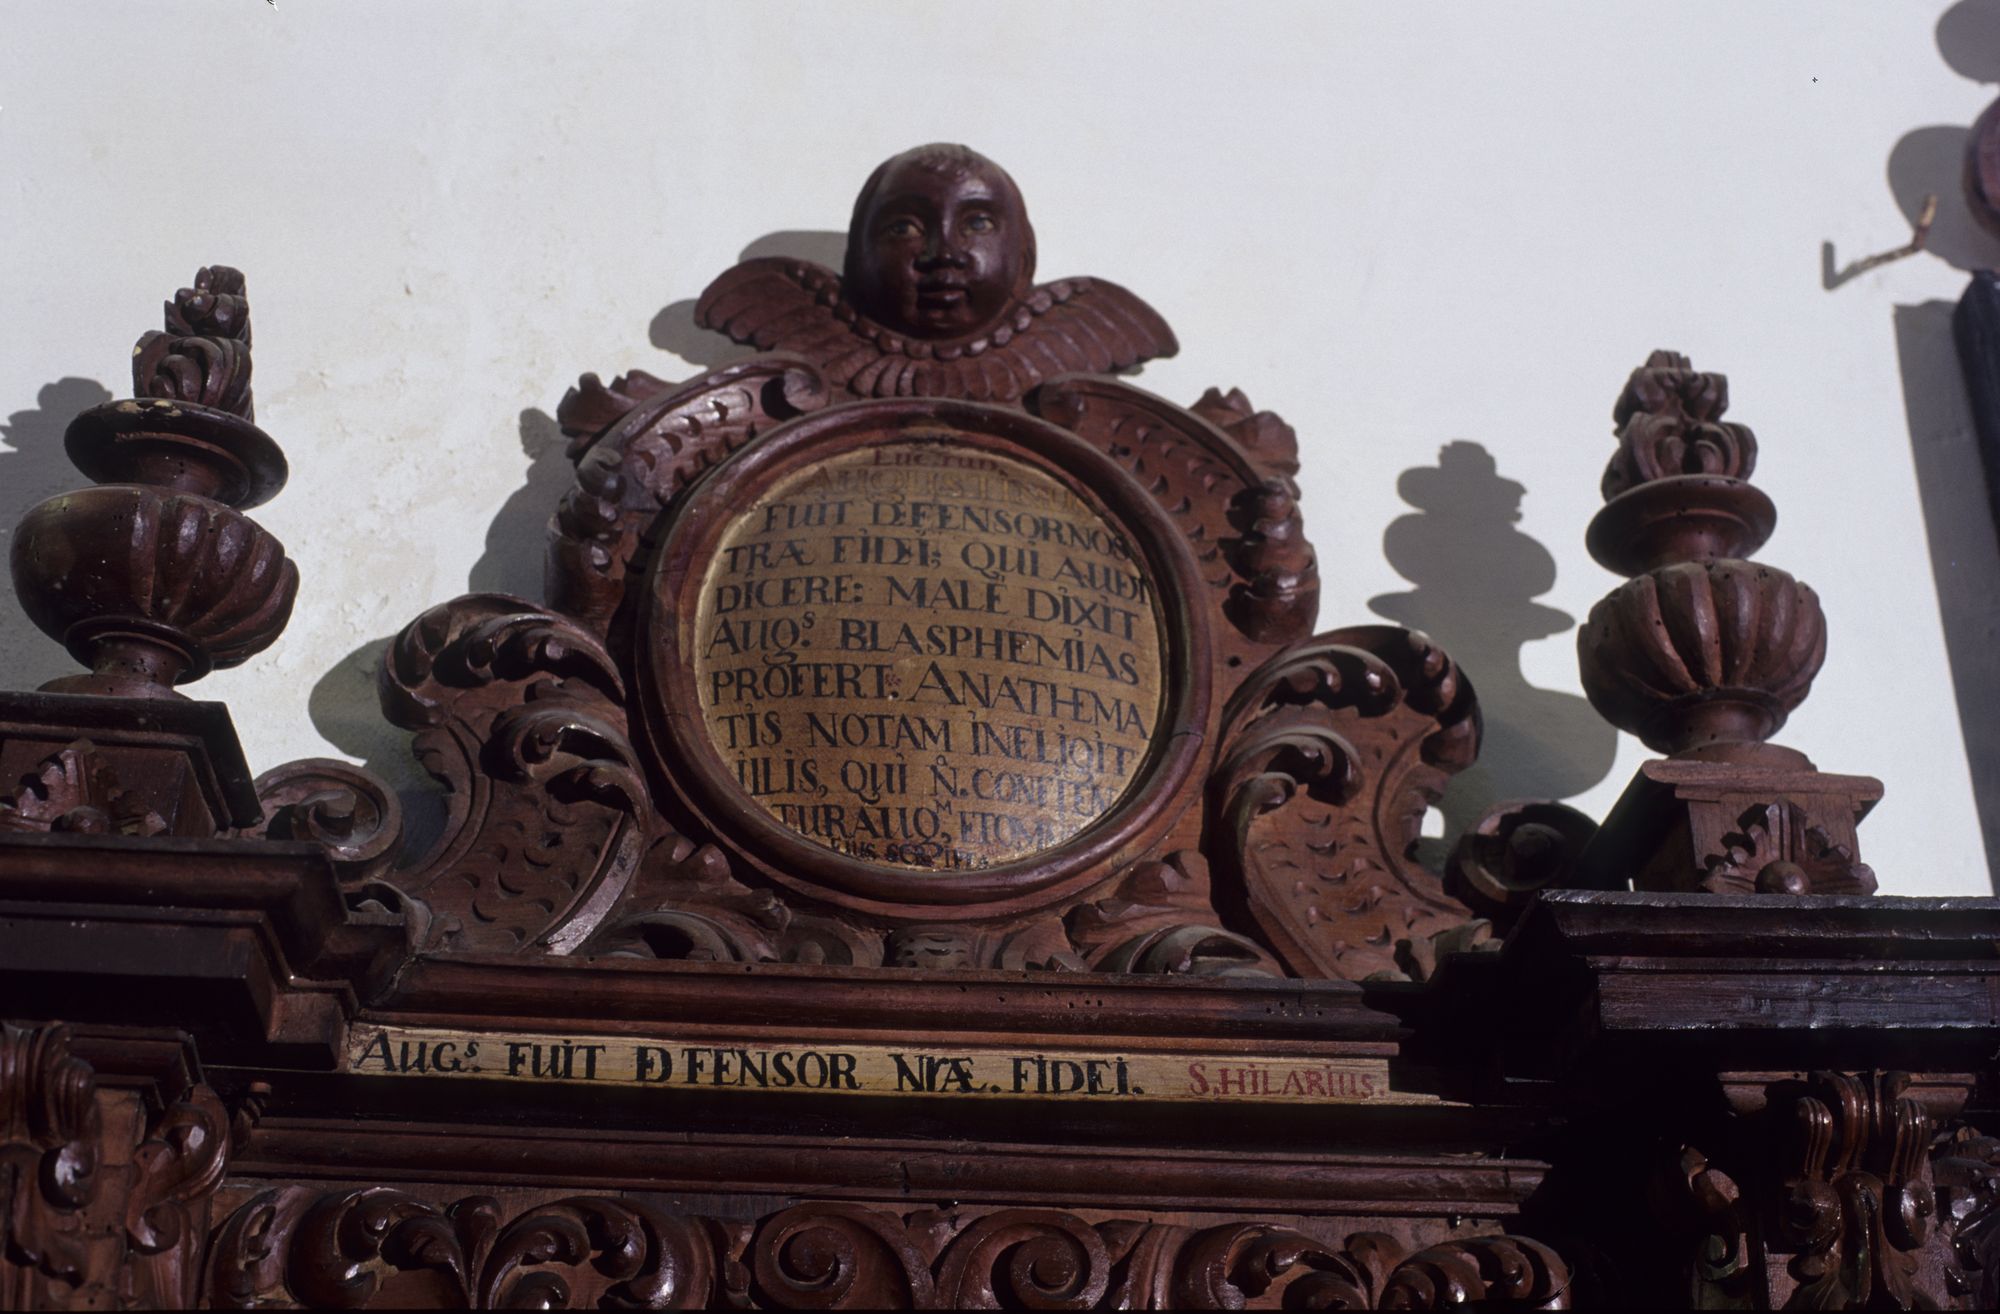 AUGUSTINUS
FUIT DEFENSOR NOS
TRÆ FIDEI; QUI AUDET
DICERE: MALE DIXIT
AUGˢ. BLASPHEMIAS
PROFERT. ANATHEMA
TIS NOTAM INELIGIT
ILLIS, QUI N̊. CONFITEN
TUR AUGᴹ, ET OM
AUGˢ. FUIT DEFENSOR NRÆ. FIDEI. S. HILARIUS.